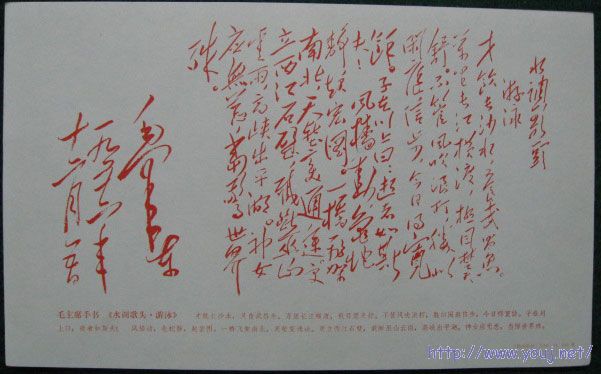 水调歌头
游泳
才饮长沙水，又食武昌鱼。
万里长江横渡，极目楚天
舒。不管风吹浪打，胜似
闲庭信步，今日得宽
馀。子在川上曰：逝者如斯
夫！风樯动，龟蛇
静，起宏图。一桥飞架
南北，天堑变通途。更
立西江石壁，截断巫山
云雨，高峡出平湖。神女
应无恙，当惊世界
殊。
毛泽东
一九五六年
十二月五日
毛主席手书 《水调歌头·游泳》 才饮长沙水，又食武昌鱼。万里长江横渡，极目楚天舒。不管风吹浪打，胜似闲庭信步，今日得宽馀。子在川
上曰：逝者如斯夫！ 风樯动，龟蛇静，起宏图。一桥飞架南北，天堑变通途。更立西江石壁，截断巫山云雨，高峡出平湖。神女应无恙，当惊世界殊。
http://www.youj.net/